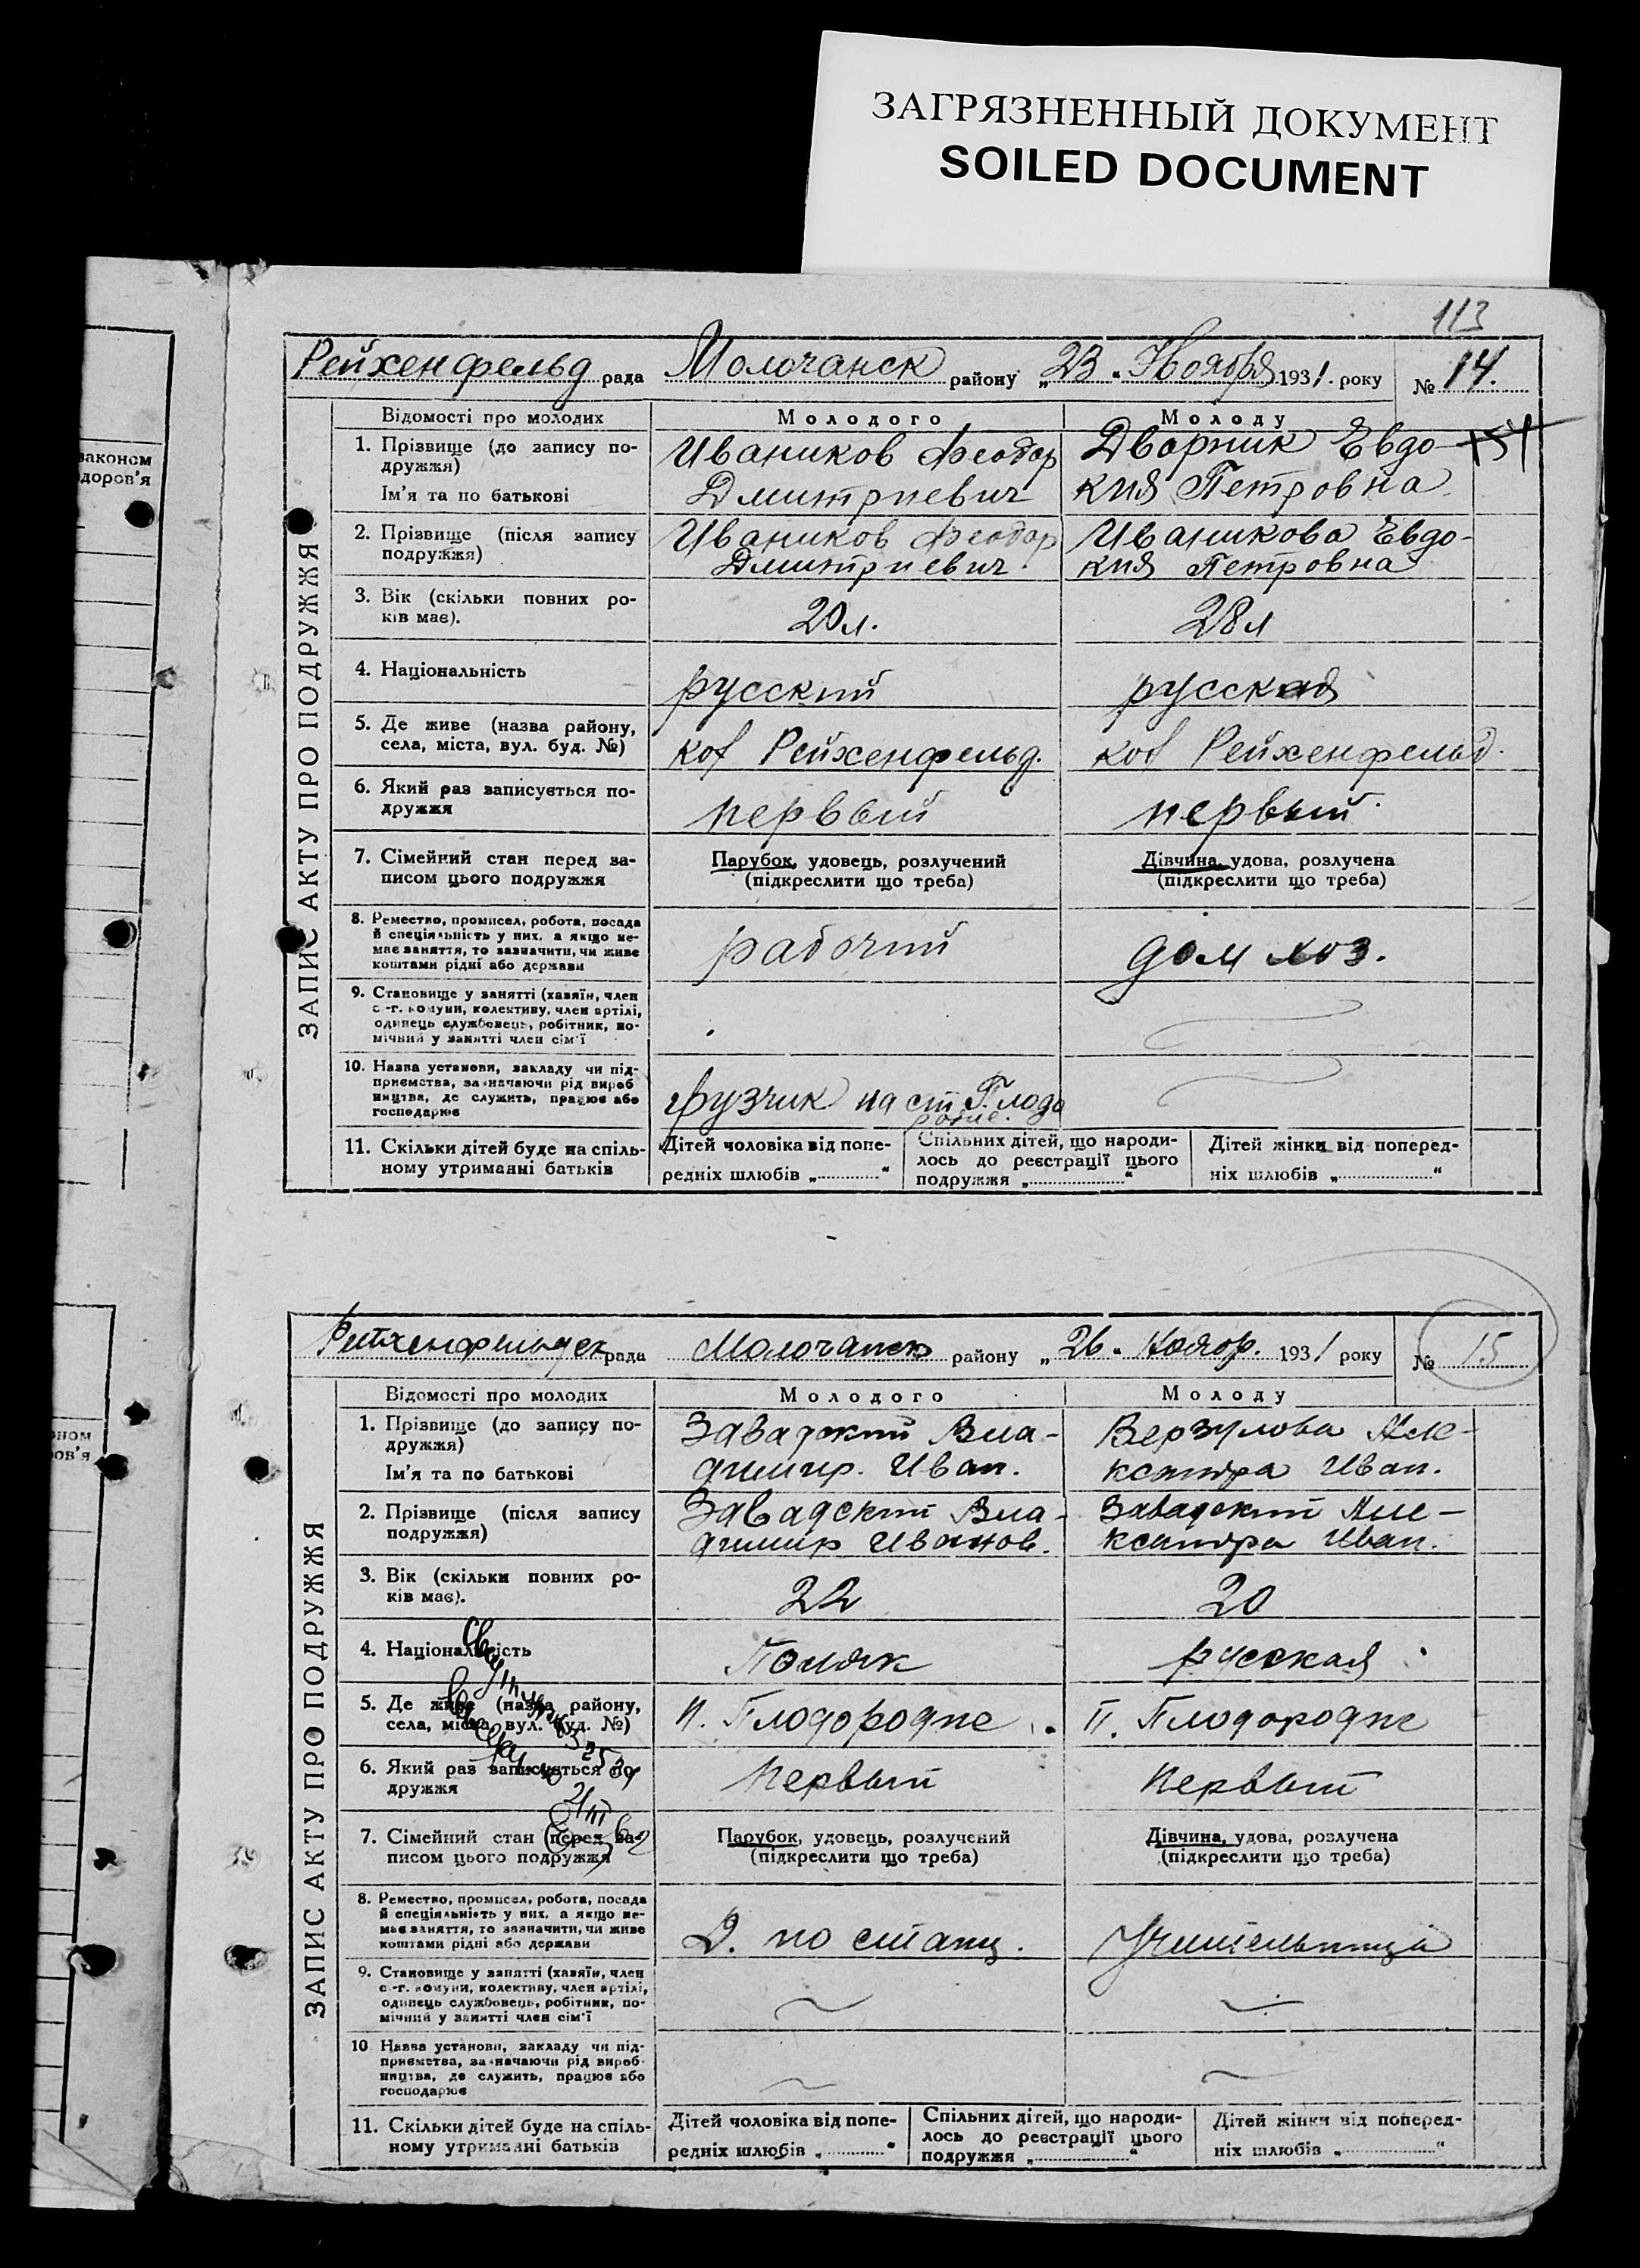 ЗАГРЯЗНЕННЫЙ ДОКУМЕНТ
SOILED DOCUMENT
законом
доров'я
113
Рейхенфельд рада Молочанск району „23“ Ноября 1931. року № 14.
ЗАПИС АКТУ ПРО ПОДРУЖЖЯ
Відомості про молодих Молодого Молоду
1. Прізвище (до запису по-
дружжя)
Ім'я та по батькові
Иваников Феодор
Дмитриевич
Дворник Евдо-
кия Петровна
2. Прізвище (після запису
подружжя)
Иваников Феодор
Дмитриевич
Иваникова Евдо-
кия Петровна
3. Вік (скільки повних ро-
ків має).
20 л.
28 л
4. Національність
русский
русская
5. Де живе (назва району,
села, міста, вул. буд. №)
Рейхенфельд.
Рейхенфельд.
6. Який раз записується по-
дружжя
первый
первый
7. Сімейний стан перед за-
писом цього подружжя
Парубок, удовець, розлучений
(підкреслити що треба)
Дівчина, удова, розлучена
(підкреслити що треба)
8. Ремество, промисел, робота, посада
й спеціяльність у них, а якщо не-
має заняття, то зазначити, чи живе
коштами рідні або держави
рабочий
дом хоз.
9. Становище у занятті (хазяїн, член
с.-г. комуни, колективу, член артілі,
одинець службовець, робітник, по-
мічний у занятті член сім'ї
10. Назва установи, закладу чи під-
приємства, зазначаючи рід вироб
ництва, де служить, працює або
господарює
грузчик на ст. Плодо
родие.
11. Скільки дітей буде на спіль-
ному утриманні батьків
Дітей чоловіка від попе-
редніх шлюбів „............“
Спільних дітей, що народи-
лось до реєстрації цього
подружжя „............“
Дітей жінки від поперед-
ніх шлюбів „............“
ном
ов'я
Рейхенфельдск рада Молочанск району „26“ Ноябр. 1931 року № 15
ЗАПИС АКТУ ПРО ПОДРУЖЖЯ
Відомості про молодих Молодого Молоду
1. Прізвище (до запису по-
дружжя)
Ім'я та по батькові
Завадский Вла-
димир. Иван.
Верзулова Але-
ксандра Иван.
2. Прізвище (після запису
подружжя)
Завадский Вла-
димир Иванов.
Завадский Але-
ксандра Иван.
3. Вік (скільки повних ро-
ків має).
22
20
4. Національність
Поляк
русская
5. Де живе (назва району,
села, міста, вул. буд. №)
п. Плодородие
п. Плодородие
6. Який раз записується по-
дружжя
Первый
Первый
7. Сімейний стан перед за-
писом цього подружжя
Парубок, удовець, розлучений
(підкреслити що треба)
Дівчина, удова, розлучена
(підкреслити що треба)
8. Ремество, промисел, робота, посада
й спеціяльність у них, а якщо не-
має заняття, то зазначити, чи живе
коштами рідні або держави
Д. по станц.
Учительница
9. Становище у занятті (хазяїн, член
с.-г. комуни, колективу, член артілі,
одинець службовець, робітник, по-
мічний у занятті член сім'ї
10 Назва установи, закладу чи під-
приємства, зазначаючи рід вироб-
ництва, де служить, працює або
господарює
11. Скільки дітей буде на спіль-
ному утриманні батьків
Дітей чоловіка від попе-
редніх шлюбів „............“
Спільних дітей, що народи-
лось до реєстрації цього
подружжя „............“
Дітей жінки від поперед-
ніх шлюбів „............“